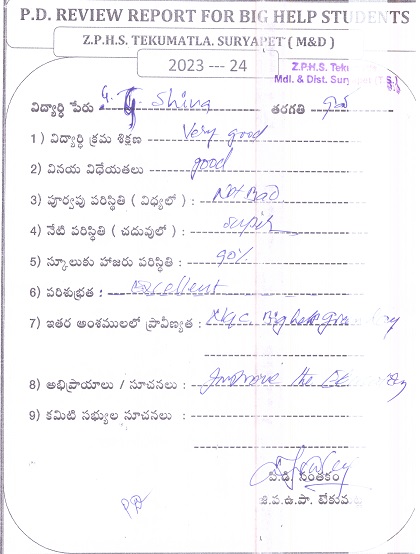 P.D. REVIEW REPORT FOR BIG HELP STUDENTS
Z.P.H.S. TEKUMATLA. SURYAPET ( M&D )
2023 --- 24
Z.P.H.S.
Mdl. & Dist.
విద్యార్థి పేరు : Shiva తరగతి
1 ) విద్యార్థి క్రమ శిక్షణ Very good
2) వినయ విధేయతలు good
3) పూర్వపు పరిస్థితి ( విధ్యలో ) : Not Bad
4) నేటి పరిస్థితి ( చదువులో ) : super
5) స్కూలుకు హాజరు పరిస్థితి : 90%
6) పరిశుభ్రత : Excellent
7) ఇతర అంశములలో ప్రావీణ్యత :
8) అభిప్రాయాలు / సూచనలు : Improve the
9) కమిటి సభ్యుల సూచనలు :
పి.డి. సంతకం
జి.ప.ఉ.పా.
PD